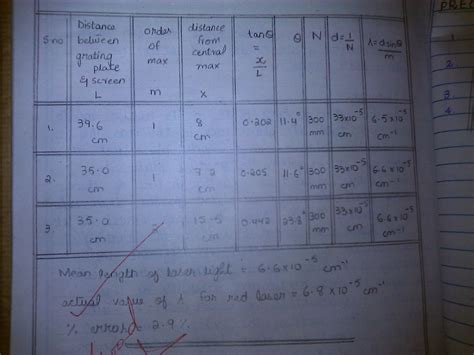 PREC
S.no Distance between grating plate & screen L order of max m distance from central max x tanθ = x/L θ N d=1/N λ=dsinθ/m
1. 39.6 cm 1 8 cm 0.202 11.4° 300 mm 33x10⁻⁵ cm 6.5x10⁻⁵ cm⁻¹
2. 35.0 cm 1 7.2 cm 0.205 11.6° 300 mm 33x10⁻⁵ cm 6.6x10⁻⁵ cm⁻¹
3. 35.0 cm 15.5 cm 0.442 23.8° 300 mm 33x10⁻⁵ cm 6.6x10⁻⁵ cm⁻¹
Mean length of laser light = 6.6x10⁻⁵ cm⁻¹
actual value of λ for red laser = 6.8x10⁻⁵ cm⁻¹
% error = 2.9%
1.
2
3
4